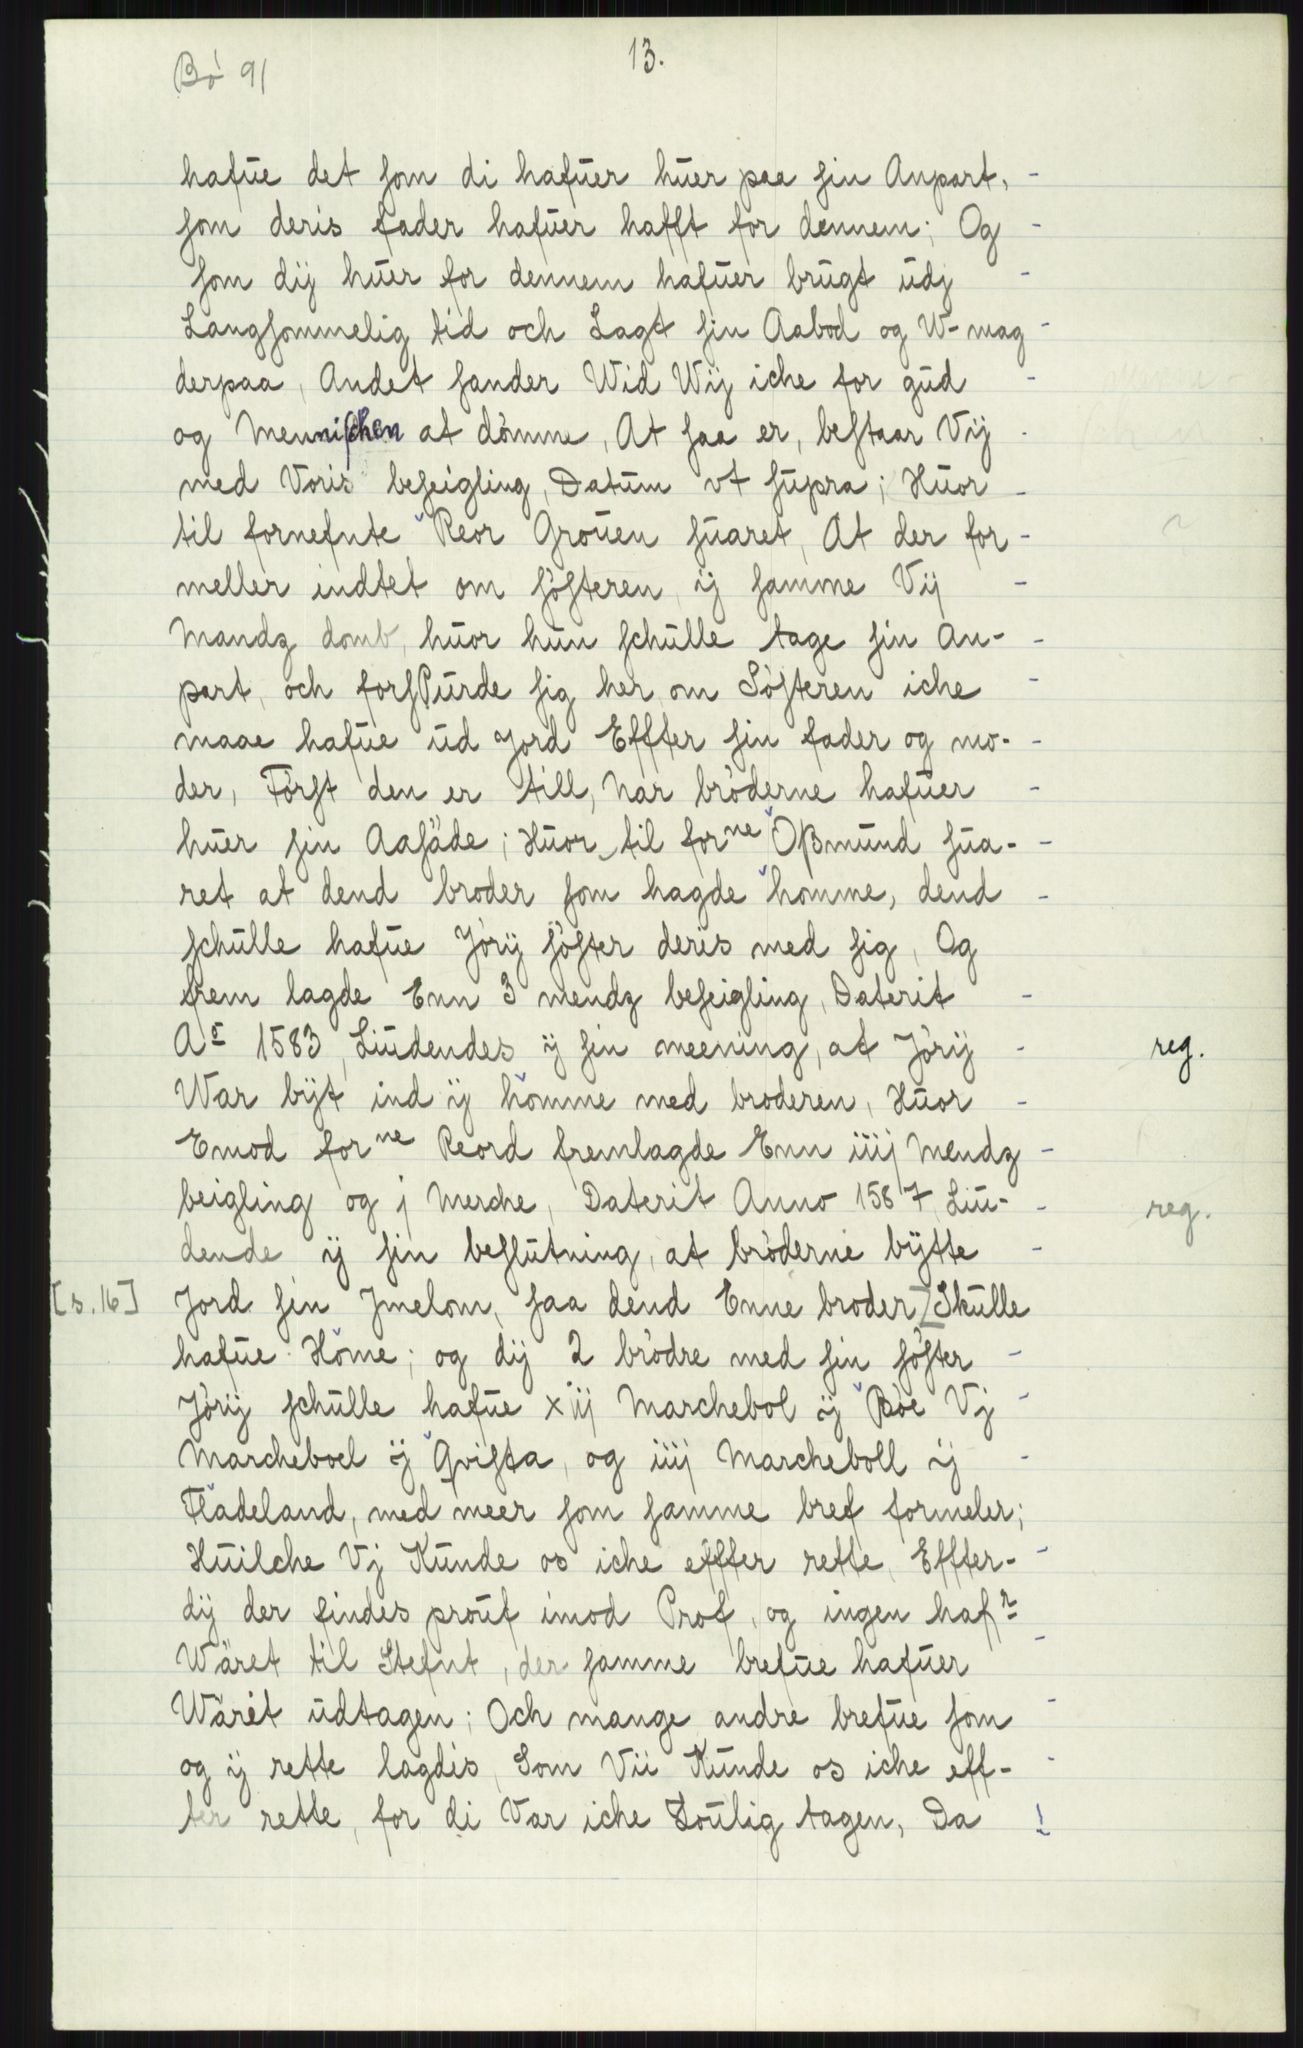 Bö 91
13.
hafue det som di hafuer huer paa sin Anpart,
som deris fader hafuer hafft for dennem; Og
som dij huer for dennem hafuer brugt udj
Langsommelig tid och Lagt sin Aabod og W-mag
derpaa, Andet sander Wid Wij iche for gud
og Mennischen at dömme, At saa er, bestaar Vij
med Voris beseigling, Datum vt supra; Huor
til fornefnte Reor Grouen suaret, At der for
meller indtet om söfteren ij samme Vij
Mandz domb, huor hun schulle tage sin An-
part, och forspurde sig her om Söfteren iche
maae hafue ud Jord Effter sin fader og mo-
der, Först den er till, Nar bröderne hafuer
huer sin Aasäde; Huor til forne Oßmund sua-
ret at dend broder som hagde homme, dend
schulle hafue Jörij söfter deris med sig, Og
frem lagde Enn 3 mendz beseigling, Daterit
Ao 1583, Liudendes ij sin meening, at Jörij
War bijt ind ij homme med broderen, Huor
Emod forne Reord fremlagde Enn iiij Mendz
beigling og j Merche, Daterit Anno 1587 Liu-
dende ij sin beslutning, at bröderne bijtte
Jord sin Jmelom, saa dend Enne broder [Skulle
hafue Home; og dij 2 brödre med sin söfter
Jörij schulle hafue xiij Marchebol ij Böe Vj
Marcheboel ij Qvista, og iiij Marcheboll ij
Fladeland, med meer som samme bref formeler;
Huilche Vj Kunde os iche effter rette, Effter-
dij der findes prouf imod Prof, og ingen hafr
Wäret til Stefnt, der samme brefue hafuer
Wäret udtagen; Och mange andre brefue som
og ij rette lagdis, Som Vii Kunde os iche eff-
ter rette, for di Var iche Loulig tagen, Da
reg.
reg.
[s. 16]